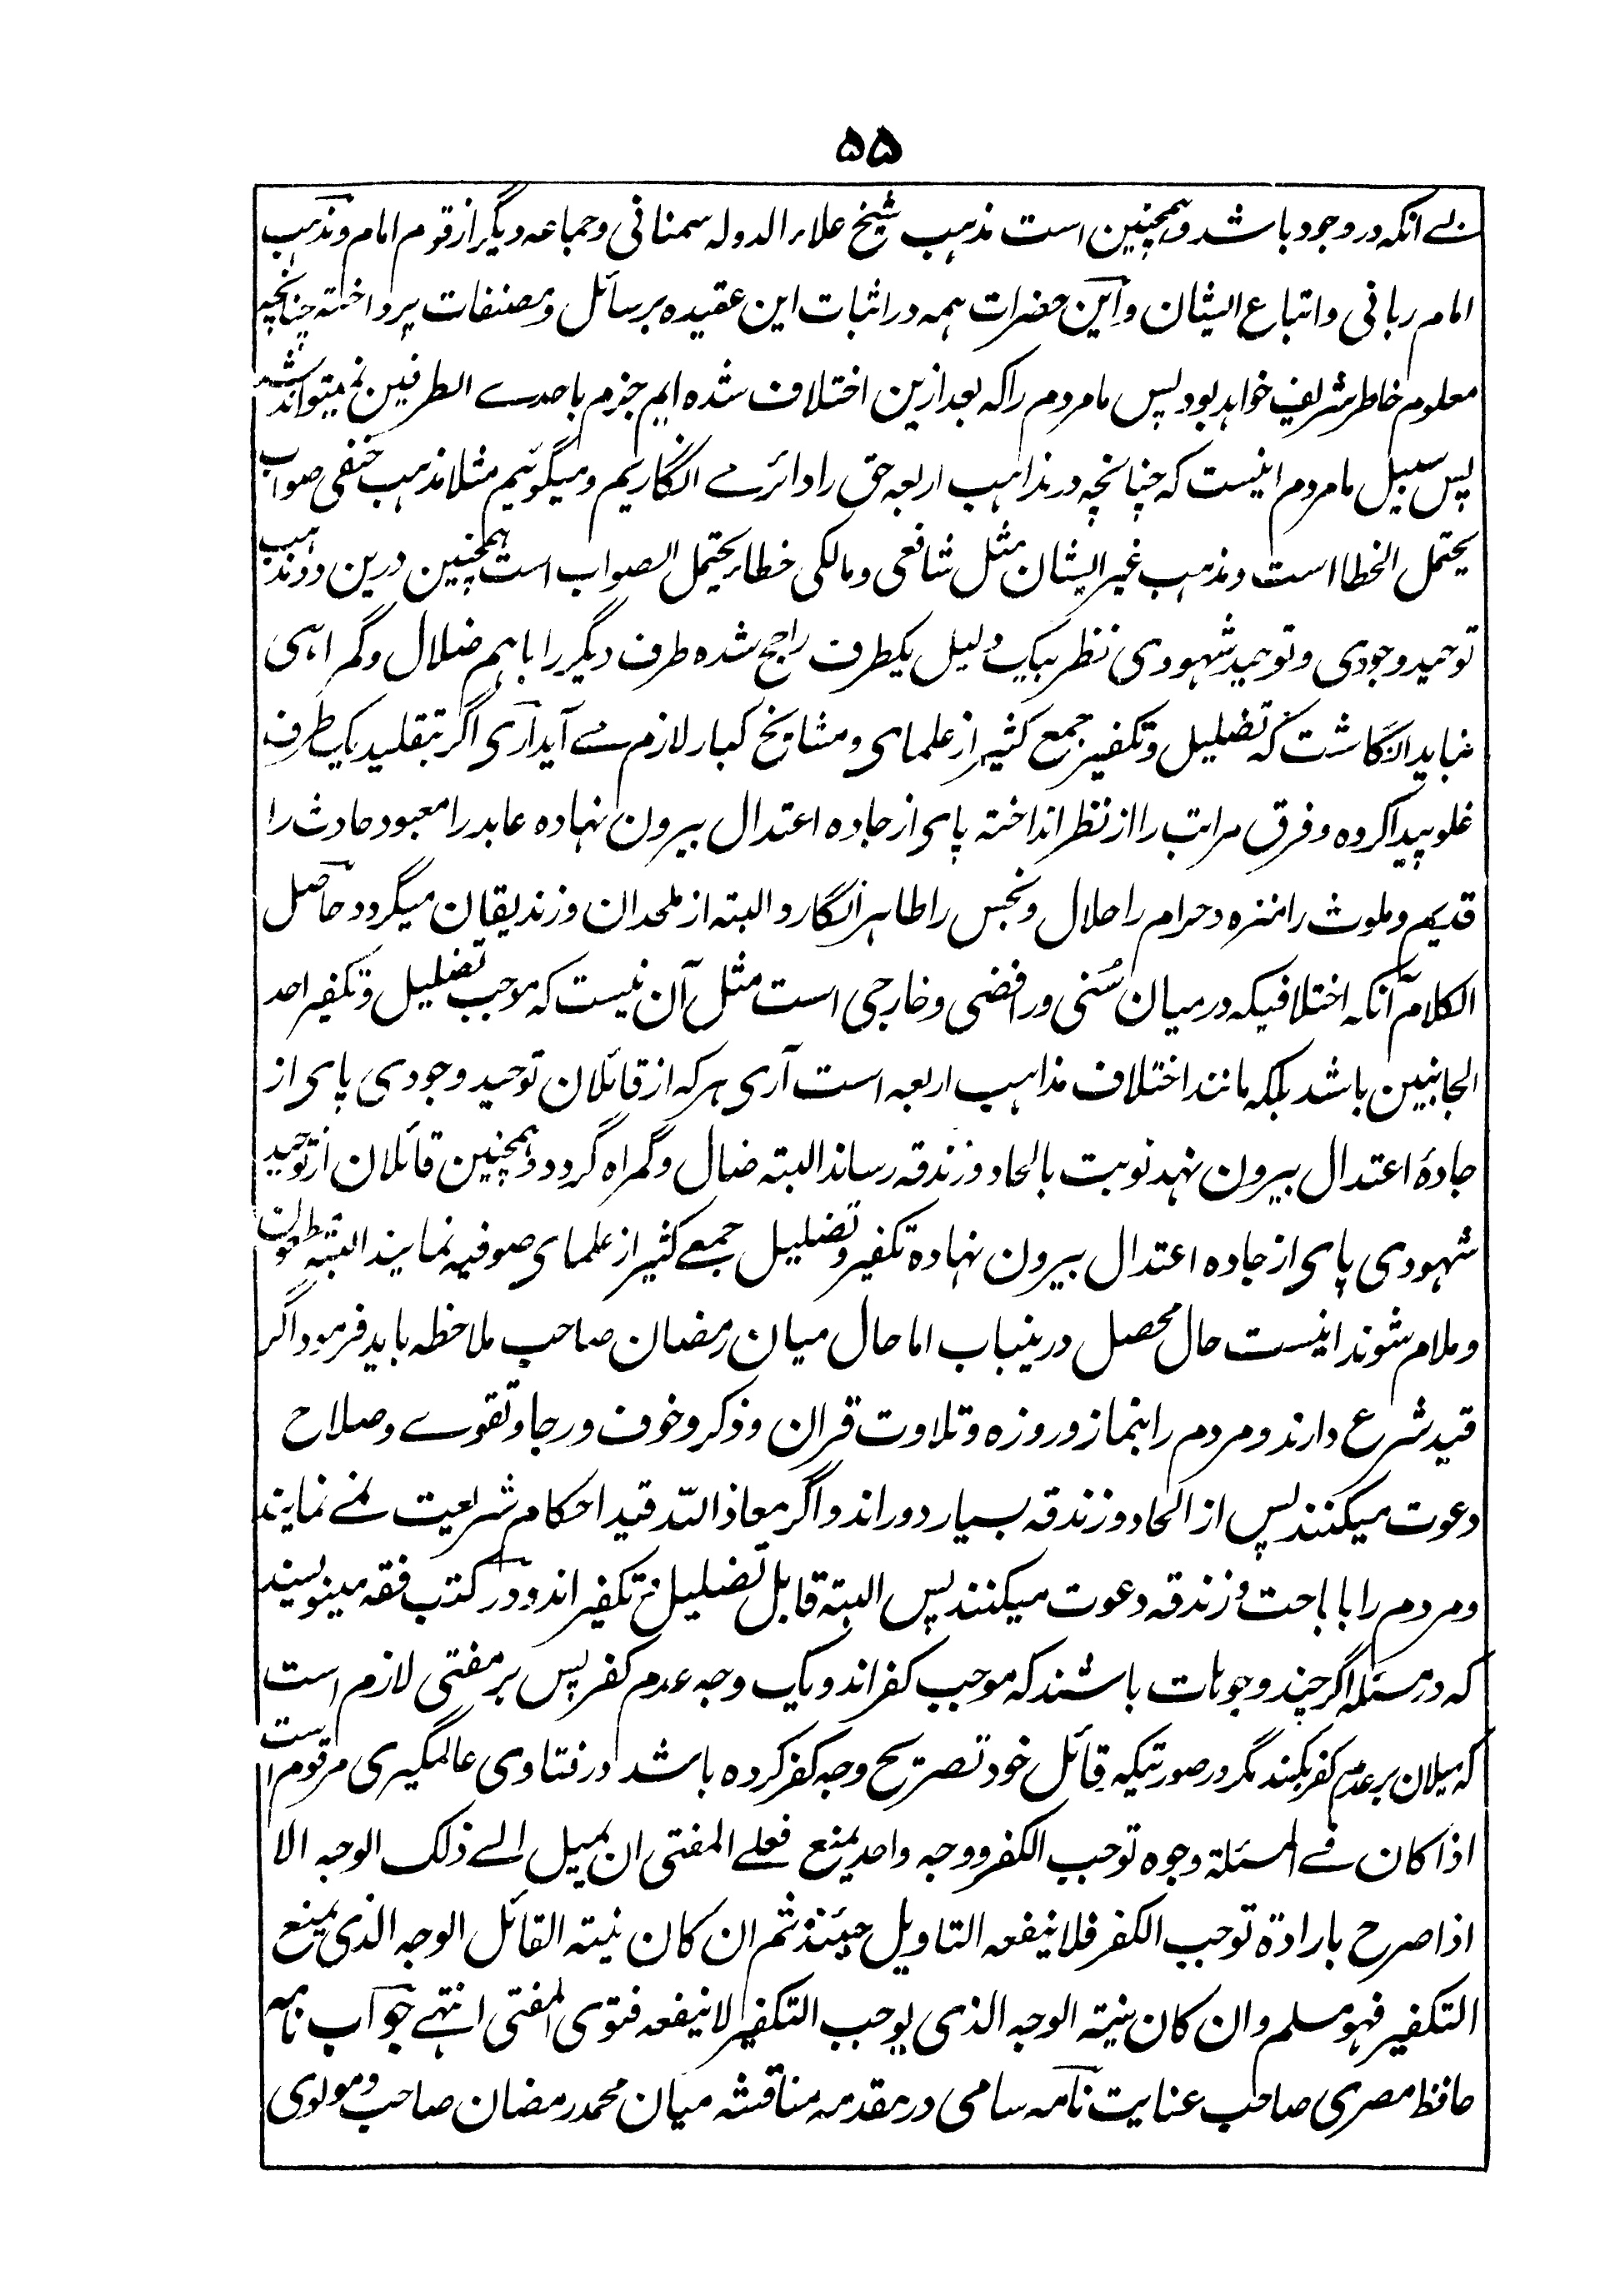 ۵۵
بے انکه در وجود باشد و همچنین است مذهب شیخ علاء الدوله سمنانی و جماعه دیگر از قوم امام و مذهب
امام ربانی و اتباع ایشان و این حضرات همه در اثبات این عقیده برسائل و مصنفات پرداخته چنانچه
معلوم خاطر شریف خواهد بود پس ما مردم را که بعد ازین اختلاف شده ایم جزم باحدے الطرفین نمیتواند شد
پس سبیل ما مردم اینست که چنانچه در مذاهب اربعه حق را دائرے انگاریم و میگوئیم مثلا مذهب حنفی صواب
یحتمل الخطا است و مذهب غیر ایشان مثل شافعی و مالکی خطاء یحتمل الصواب است همچنین درین دو مذهب
توحید وجودی و توحید شهودی نظر بیک دلیل یکطرف راجح شده طرف دیگر را با هم ضلال و گمراهی
نباید انگاشت که تضلیل و تکفیر جمع کثیر از علمای و مشایخ کبار لازم مے آید آری اگر بتقلید یک طرف
غلو پیدا کرده و فرق مراتب را از نظر انداخته پای از جاده اعتدال بیرون نهاده عابد را معبود حادث را
قدیم و ملوث را منزه و حرام را حلال و نجس را طاهر انگارد البته از ملحدان و زندیقان میگردد حاصل
الکلام آنکه اختلافیکه درمیان سُنی و رافضی و خارجی است مثل آن نیست که موجب تضلیل و تکفیر احد
الجانبین باشد بلکه مانند اختلاف مذاهب اربعه است آری هر که از قائلان توحید وجودی پای از
جادۀ اعتدال بیرون نهد نوبت بالحاد و زندقه رساند البته ضال و گمراه گردد و همچنین قائلان از توحید
شهودی پای از جاده اعتدال بیرون نهاده تکفیر و تضلیل جمعے کثیر از علمای صوفیه نمایند البته مطعون
و ملام شوند اینست حال محصل درینباب اما حال میان رمضان صاحب ملاحظه باید فرمود اگر
قید شرع دارند و مردم را بنماز و روزه و تلاوت قران و ذکر و خوف و رجا و تقوے و صلاح
دعوت میکنند پس از الحاد و زندقه بسیار دور اند و اگر معاذ الله قید احکام شریعت نمے نمایند
و مردم را با باحت و زندقه دعوت میکنند پس البته قابل تضلیل و تکفیر اند و در کتب فقه مینویسند
که در مسئله اگر چند وجوهات باشند که موجب کفر اند و یک وجه عدم کفر پس بر مفتی لازم است
که میلان بر عدم کفر بکند مگر در صورتیکه قائل خود تصریح وجه کفر کرده باشد در فتاوی عالمگیری مرقوم است
اذا کان فے المسئلة وجوه توجب الکفر و وجه واحد یمنع فعلے المفتی ان یمیل الے ذلک الوجه الا
اذا صرح بارادة توجب الکفر فلا ینفعه التاویل حینئذ ثم ان کان نیته القائل الوجه الذی یمنع
التکفیر فهو مسلم و ان کان نیته الوجه الذی یوجب التکفیر لا ینفعه فتوی المفتی انتهے جواب نامه
حافظ مصری صاحب عنایت نامه سامی در مقدمه مناقشه میان محمد رمضان صاحب و مولوی